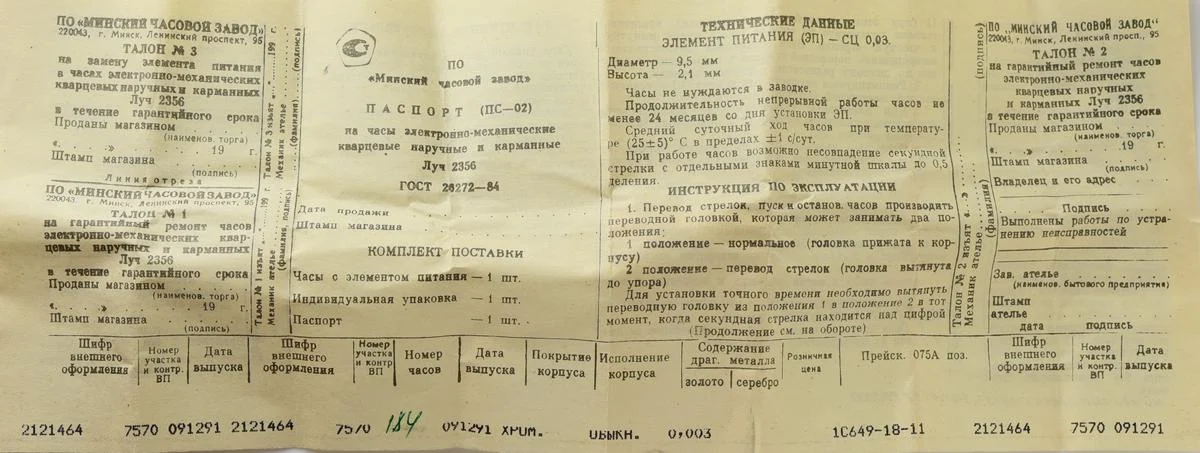 ПО «МИНСКИЙ ЧАСОВОЙ ЗАВОД»
220043, г. Минск, Ленинский проспект, 95
ТАЛОН № 3
на замену элемента питания
в часах электронно-механических
кварцевых наручных и карманных
Луч 2356
в течение гарантийного срока
Проданы магазином . . . . . . .
(наименов. торга)
«. . . . .» . . . . . . . . . 19 г.
Штамп магазина . . . . . . . .
(подпись)
Линия отреза
ПО «МИНСКИЙ ЧАСОВОЙ ЗАВОД»
220043, г. Минск, Ленинский проспект, 95
ТАЛОН № 1
на гарантийный ремонт часов
электронно-механических квар-
цевых наручных и карманных
Луч 2356
в течение гарантийного срока
Проданы магазином . . . . . . .
(наименов. торга)
«. . . . .» . . . . . . . . . 19 г.
Штамп магазина . . . . . . . .
(подпись)
Талон № 3 изъят «. .» . . . . 199 г.
Механик ателье . . . . . .
(фамилия) (подпись)
Талон № 1 изъят «. .» . . . . 199 г.
Механик ателье . . . . . .
(фамилия, подпись)
ПО
«Минский часовой завод»
ПАСПОРТ (ПС—02)
на часы электронно-механические
кварцевые наручные и карманные
Луч 2356
ГОСТ 26272—84
Дата продажи . . . . . . . . . .
Штамп магазина . . . . . . . . .
КОМПЛЕКТ ПОСТАВКИ
Часы с элементом питания — 1 шт.
Индивидуальная упаковка — 1 шт.
Паспорт — 1 шт.
ТЕХНИЧЕСКИЕ ДАННЫЕ
ЭЛЕМЕНТ ПИТАНИЯ (ЭП) — СЦ 0,03.
Диаметр — 9,5 мм
Высота — 2,1 мм
Часы не нуждаются в заводке.
Продолжительность непрерывной работы часов не
менее 24 месяцев со дня установки ЭП.
Средний суточный ход часов при температу-
ре (25±5)° С в пределах ±1 с/сут.
При работе часов возможно несовпадение секундной
стрелки с отдельными знаками минутной шкалы до 0,5
деления.
ИНСТРУКЦИЯ ПО ЭКСПЛУАТАЦИИ
1. Перевод стрелок, пуск и останов. часов производить
переводной головкой, которая может занимать два по-
ложения:
1 положение — нормальное (головка прижата к кор-
пусу)
2 положение — перевод стрелок (головка вытянута
до упора)
Для установки точного времени необходимо вытянуть
переводную головку из положения 1 в положение 2 в тот
момент, когда секундная стрелка находится над цифрой
(Продолжение см. на обороте)
Талон № 2 изъят «. .» . . . .
Механик ателье . . . . . .
(фамилия) (подпись)
ПО „МИНСКИЙ ЧАСОВОЙ ЗАВОД“
220043, г. Минск, Ленинский просп., 95
ТАЛОН № 2
на гарантийный ремонт часов
электронно-механических
кварцевых наручных
и карманных Луч 2356
в течение гарантийного срока
Проданы магазином . . . . . . .
(наименов. торга)
«. . . . .» . . . . . . . . . 19 г.
Штамп магазина . . . . . . . .
(подпись)
Владелец и его адрес . . . . . .
Подпись . . . . . .
Выполнены работы по устра-
нению неисправностей
Зав. ателье
(наименов. бытового предприятия)
Штамп
ателье . . . . . . . . . .
дата подпись
Шифр внешнего оформления | Номер участка и контр. ВП | Дата выпуска | Шифр внешнего оформления | Номер участка и контр. ВП | Номер часов | Дата выпуска | Покрытие корпуса | Исполнение корпуса | Содержание драг. металла золото | серебро | Розничная цена | Прейск. 075А поз. | Шифр внешнего оформления | Номер участка и контр. ВП | Дата выпуска
2121464 7570 091291 2121464 7570 184 091291 ХРОМ. ОБЫКН. 0,003 1С649-18-11 2121464 7570 091291